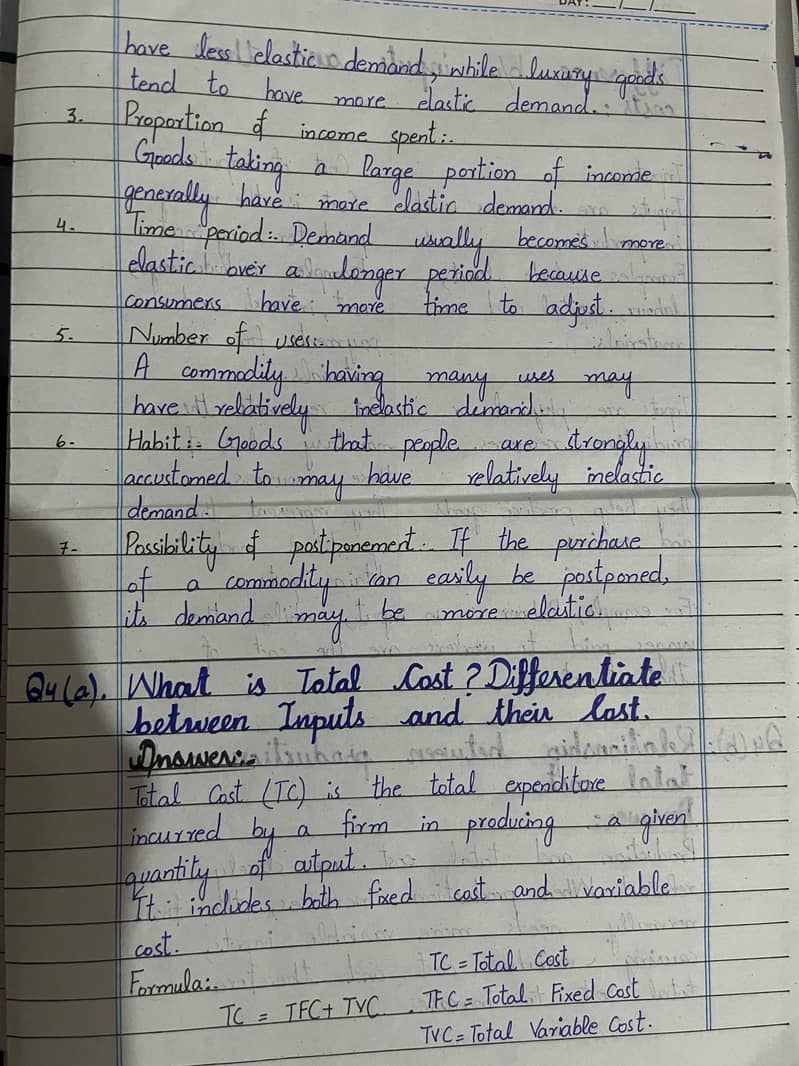 DAY: __/__/__
have less elastic demand, while luxury goods
tend to have more elastic demand.
3. Proportion of income spent:-
Goods taking a large portion of income
generally have more elastic demand.
4- Time period:- Demand usually becomes more
elastic over a longer period because
consumers have more time to adjust.
5- Number of uses:-
A commodity having many uses may
have relatively inelastic demand.
6- Habit:- Goods that people are strongly
accustomed to may have relatively inelastic
demand.
7- Possibility of postponement:- If the purchase
of a commodity can easily be postponed,
its demand may be more elastic.
Q4(a). What is Total Cost? Differentiate
between Inputs and their Cost.
Answer:-
Total Cost (TC) is the total expenditure
incurred by a firm in producing a given
quantity of output.
It includes both fixed cost and variable
cost.
Formula:-
TC = Total Cost
TC = TFC + TVC. TFC = Total Fixed Cost
TVC = Total Variable Cost.